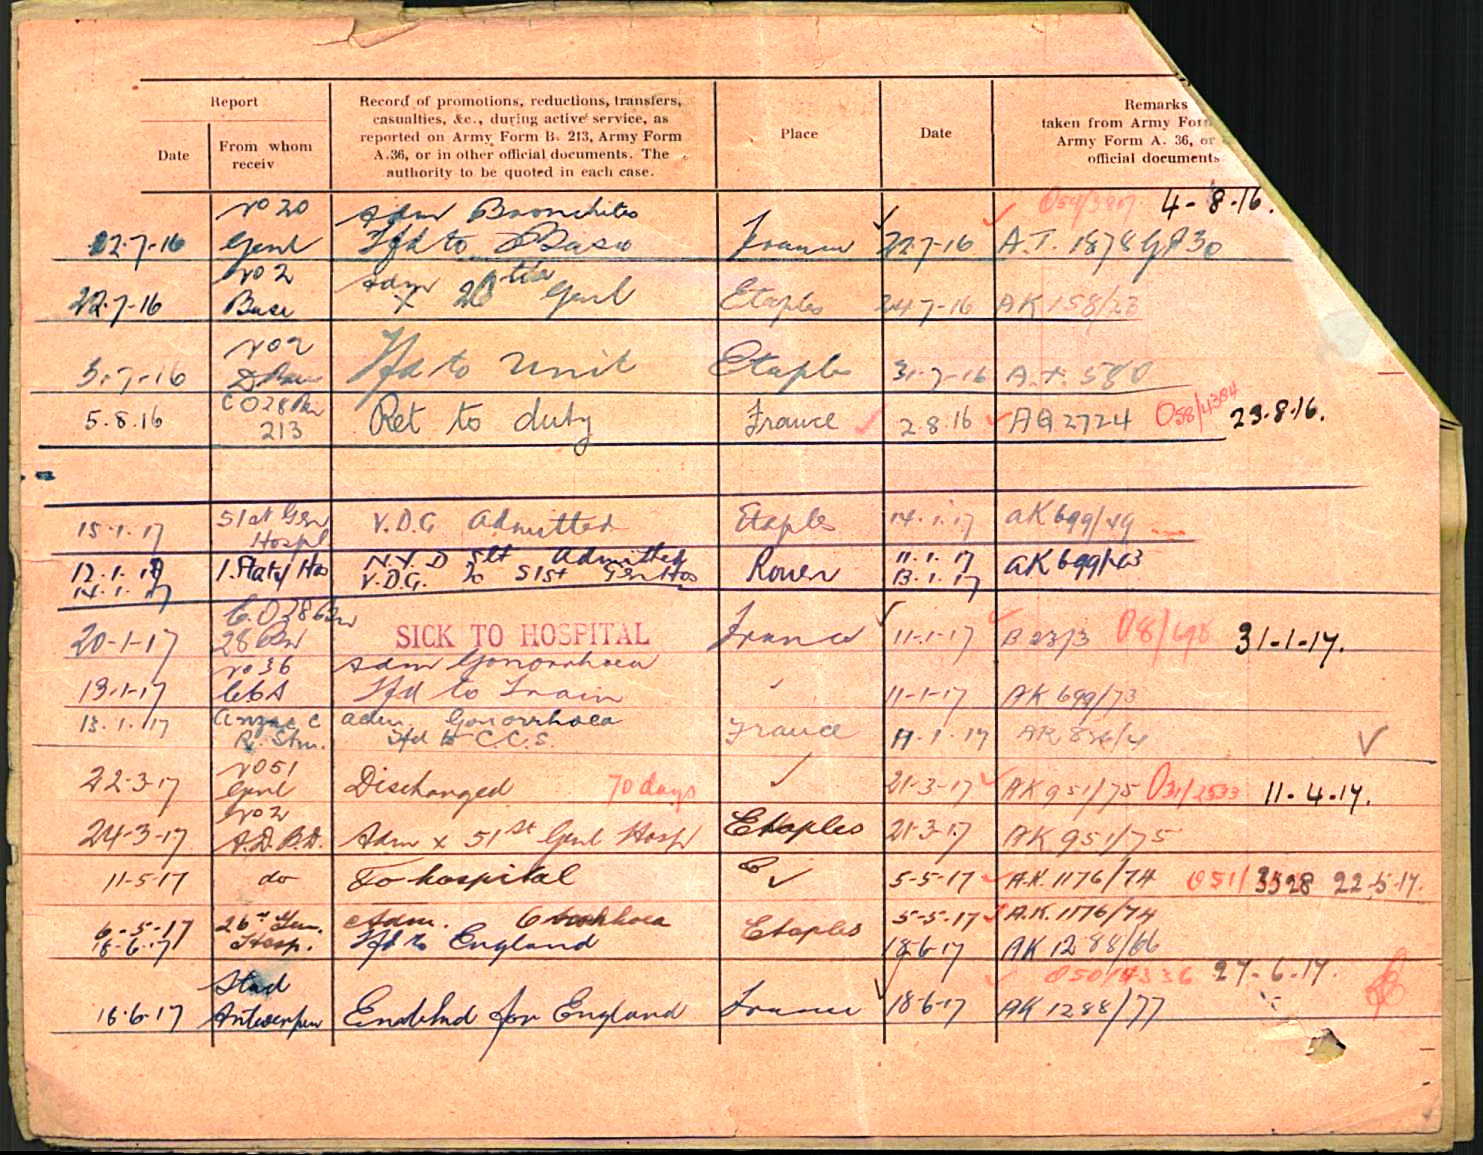 Report
Record of promotions, reductions, transfers,
casualties, &c., during active service, as
reported on Army Form B. 213, Army Form
A.36, or in other official documents. The
authority to be quoted in each case.
Place
Date
Remarks
taken from Army For
Army Form A. 36, or
official documents
Date
From whom
receiv
No 20 Adm Bronchitis 4-8-16.
22-7-16 Genl Tfd to Base France 22-7-16 A.T. 1878
No 2 Adm
22-7-16 Base x 20 Genl Etaples 24-7-16 AK 158/23
No 2
3.-7-16 Tfd to Unit Etaples 31-7-16 A.T. 580
5.8.16 CO 28 Bn 213 Ret to duty France 2.8.16 AQ 2724 O58/4384 23.8.16.
15.1.17 51st Gen Hospl V.D.G Admitted Etaples 14.1.17 AK 699/49
12.1.17 1. Staty Hos N.Y.D Slt Admitted Rouen 11.1.17 AK 699/63
14.1.17 V.D.G. To 51st Gen Hos 13.1.17
C.O 28 Bn
20-1-17 28 Bn SICK TO HOSPITAL France 11-1-17 B 2373 O8/698 31-1-17.
No 36 Adm Gonorrhoea
13-1-17 CCS Tfd to Train 11-1-17 AK 699/73
13.1.17 Anzac C adm. Gonorrhoea France 11.1.17
R. Stn. Tfd to C.C.S.
No 51
22-3-17 Genl Discharged 70 days 21-3-17 AK 951/75 O31/2533 11-4-17.
No 2
24-3-17 A.D.B.D. Adm x 51st Genl Hosp Etaples 21-3-17 AK 951/75
11-5-17 do To hospital 5-5-17 A.K. 1176/74 O51/3528 22-5-17.
6-5-17 26th Gen. Adm. Etaples 5-5-17 A.K. 1176/74
18-6-17 Hosp. Tfd to England 18-6-17 AK 1288/66
O50/4336 27-6-17.
Antwerpen
18-6-17 Embkd for England France 18-6-17 AK 1288/77